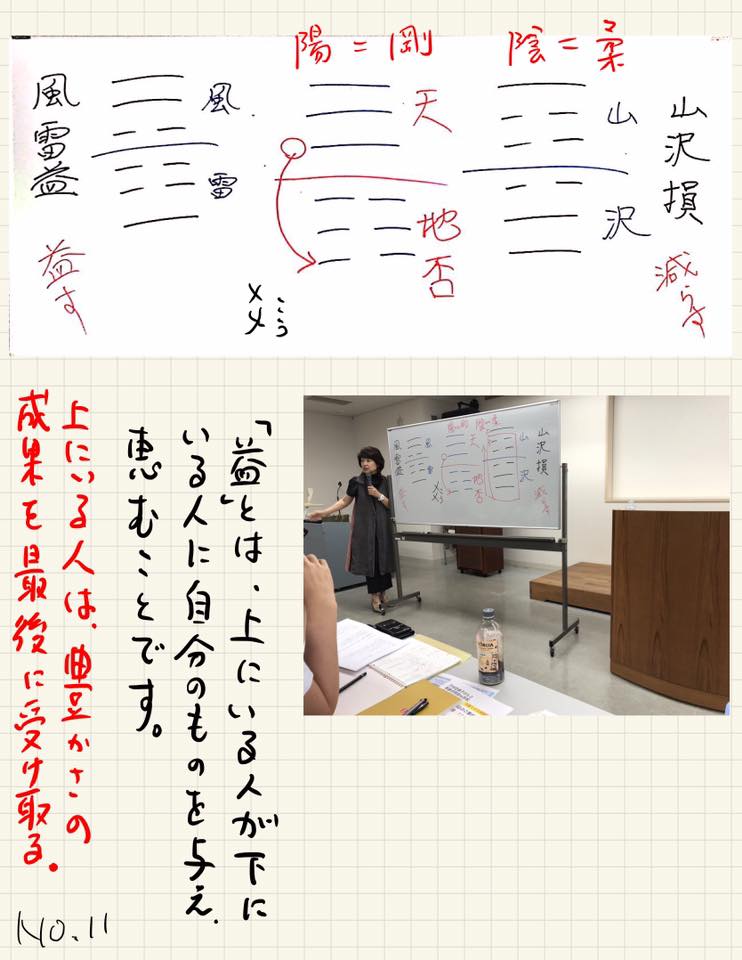 陽=剛
陰=柔
山沢損
減らす
山
沢
天
地
否
風
雷
風雷益
益す
「益」とは、上にいる人が下に
いる人に自分のものを与え、
恵むことです。
上にいる人は、豊かさの
成果を最後に受け取る。
NO.11
山沢損
山
沢
天
地
否
風
雷
風雷益